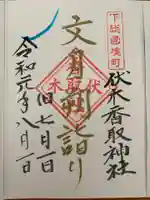 下総国境町
伏木香取神社
文月朔詣り
伏木
香取
旧七月一日
令和元年八月一日